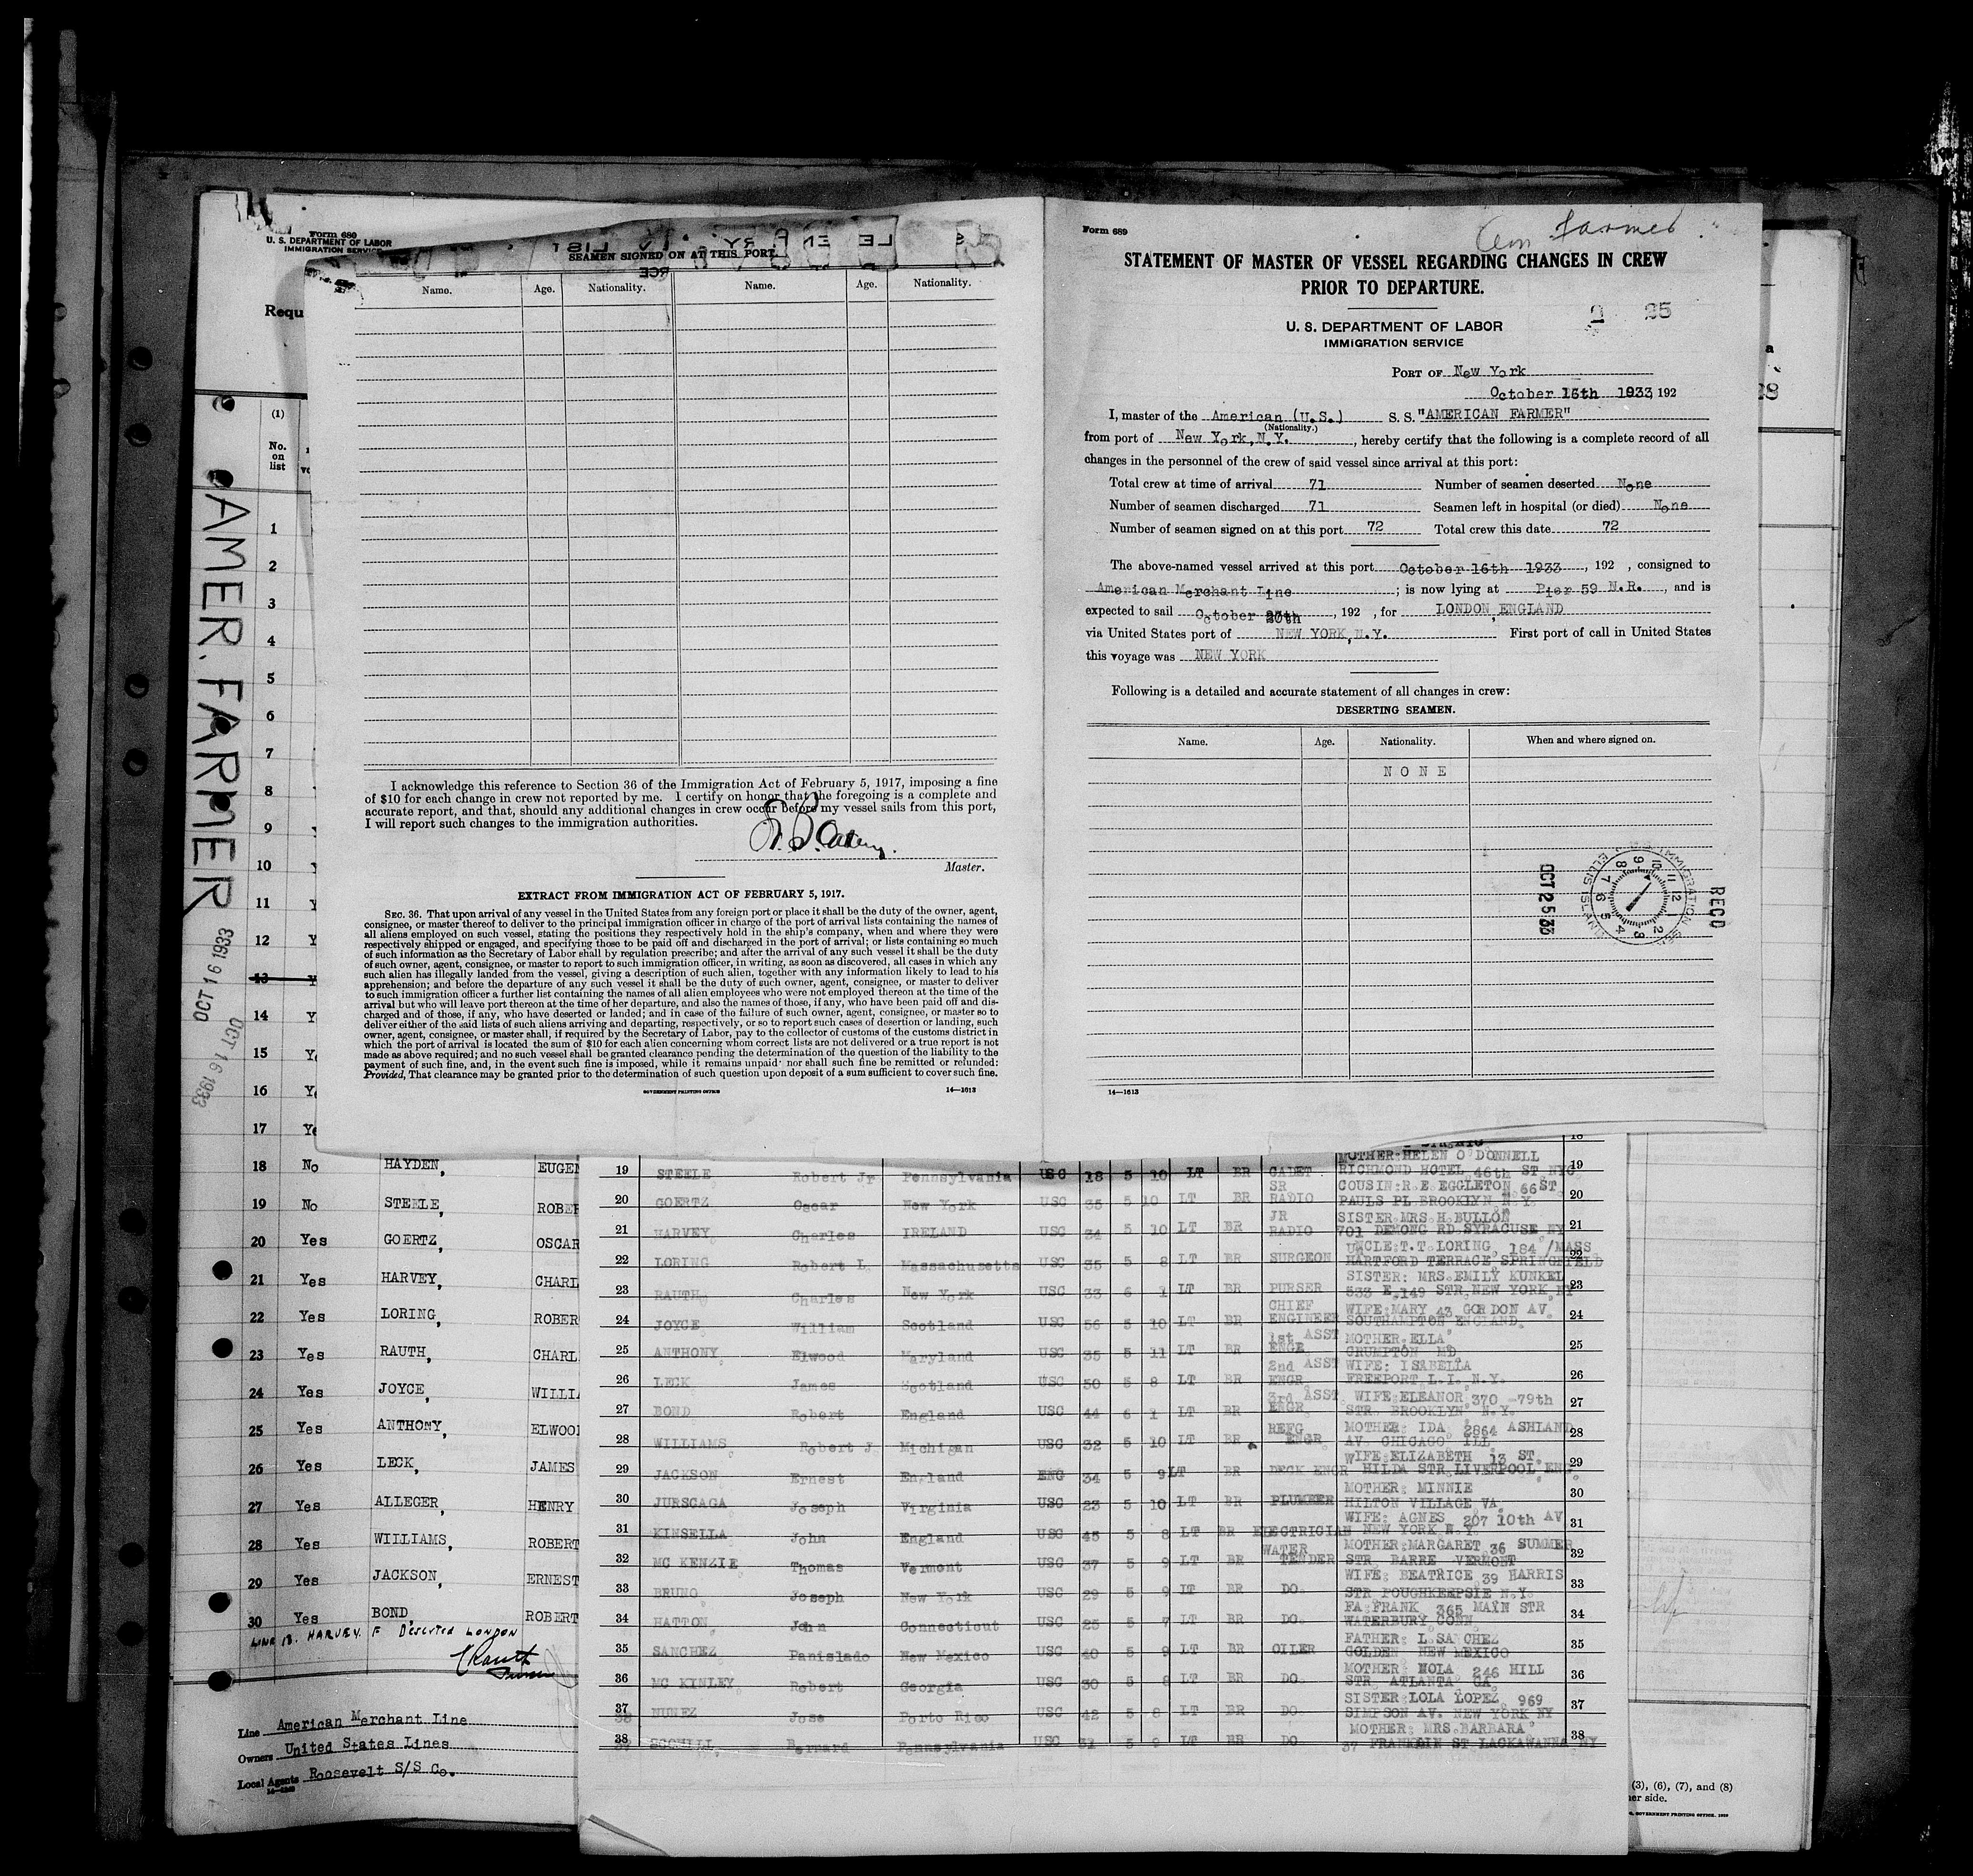 Form 689
U. S. DEPARTMENT OF LABOR
IMMIGRATION SERVICE
Requ
(1)
No.
on
list
AMER. FARMER
OCT 16 1933
OCT 16 1933
1
2
3
4
5
6
7
8
9
10
11
12
13
14
15
16
17
18 No HAYDEN, EUGEN
19 No STEELE, ROBER
20 Yes GOERTZ, OSCAR
21 Yes HARVEY, CHARL
22 Yes LORING, ROBER
23 Yes RAUTH, CHARL
24 Yes JOYCE, WILLI
25 Yes ANTHONY, ELWOO
26 Yes LECK, JAMES
27 Yes ALLEGER, HENRY
28 Yes WILLIAMS, ROBERT
29 Yes JACKSON, ERNEST
30 Yes BOND, ROBERT
LINE 13. HARVEY. F Deserted LONDON
CRauth
Purser
Line American Merchant Line
Owners United States Lines
Local Agents Roosevelt S/S Co.
SEAMEN SIGNED ON AT THIS PORT.
Name. Age. Nationality. Name. Age. Nationality.
I acknowledge this reference to Section 36 of the Immigration Act of February 5, 1917, imposing a fine
of $10 for each change in crew not reported by me. I certify on honor that the foregoing is a complete and
accurate report, and that, should any additional changes in crew occur before my vessel sails from this port,
I will report such changes to the immigration authorities.
Master.
EXTRACT FROM IMMIGRATION ACT OF FEBRUARY 5, 1917.
SEC. 36. That upon arrival of any vessel in the United States from any foreign port or place it shall be the duty of the owner, agent,
consignee, or master thereof to deliver to the principal immigration officer in charge of the port of arrival lists containing the names of
all aliens employed on such vessel, stating the positions they respectively hold in the ship's company, when and where they were
respectively shipped or engaged, and specifying those to be paid off and discharged in the port of arrival; or lists containing so much
of such information as the Secretary of Labor shall by regulation prescribe; and after the arrival of any such vessel it shall be the duty
of such owner, agent, consignee, or master to report to such immigration officer, in writing, as soon as discovered, all cases in which any
such alien has illegally landed from the vessel, giving a description of such alien, together with any information likely to lead to his
apprehension; and before the departure of any such vessel it shall be the duty of such owner, agent, consignee, or master to deliver
to such immigration officer a further list containing the names of all alien employees who were not employed thereon at the time of the
arrival but who will leave port thereon at the time of her departure, and also the names of those, if any, who have been paid off and dis-
charged and of those, if any, who have deserted or landed; and in case of the failure of such owner, agent, consignee, or master so to
deliver either of the said lists of such aliens arriving and departing, respectively, or so to report such cases of desertion or landing, such
owner, agent, consignee, or master shall, if required by the Secretary of Labor, pay to the collector of customs of the customs district in
which the port of arrival is located the sum of $10 for each alien concerning whom correct lists are not delivered or a true report is not
made as above required; and no such vessel shall be granted clearance pending the determination of the question of the liability to the
payment of such fine, and, in the event such fine is imposed, while it remains unpaid nor shall such fine be remitted or refunded:
Provided, That clearance may be granted prior to the determination of such question upon deposit of a sum sufficient to cover such fine.
GOVERNMENT PRINTING OFFICE 14—1613
Form 689
Am Farmer
STATEMENT OF MASTER OF VESSEL REGARDING CHANGES IN CREW
PRIOR TO DEPARTURE.
U. S. DEPARTMENT OF LABOR
IMMIGRATION SERVICE
2 25
PORT OF New York
October 16th 1933, 192
I, master of the American (U.S.) S. S. "AMERICAN FARMER"
(Nationality.)
from port of New York, N.Y., hereby certify that the following is a complete record of all
changes in the personnel of the crew of said vessel since arrival at this port:
Total crew at time of arrival 71 Number of seamen deserted None
Number of seamen discharged 71 Seamen left in hospital (or died) None
Number of seamen signed on at this port 72 Total crew this date 72
The above-named vessel arrived at this port October 16th 1933, 192 , consigned to
American Merchant Line ; is now lying at Pier 59 N.R., and is
expected to sail October 20th, 192 , for LONDON, ENGLAND
via United States port of NEW YORK, N.Y. First port of call in United States
this voyage was NEW YORK
Following is a detailed and accurate statement of all changes in crew:
DESERTING SEAMEN.
Name. Age. Nationality. When and where signed on.
NONE
REC'D
OCT 25 33
IMMIGRATION SER
ELLIS ISLAND
14—1613
18
19 STEELE Robert Jr Pennsylvania USC 18 5 10 LT BR CADET MOTHER:HELEN O'DONNELL RICHMOND HOTEL 46th ST NYC 19
20 GOERTZ Oscar New York USC 35 5 10 LT BR SR RADIO COUSIN:R E EGGLETON 66 ST PAULS PL BROOKLYN N.Y. 20
21 HARVEY Charles IRELAND USC 34 5 10 LT BR JR RADIO SISTER MRS H BULLON 701 DEMONG RD SYRACUSE NY 21
22 LORING Robert L. Massachusetts USC 35 5 8 LT BR SURGEON UNCLE:T.T. LORING, 184 /MASS HARTFORD TERRACE SPRINGFIELD 22
23 RAUTH Charles New York USC 33 6 1 LT BR PURSER SISTER: MRS EMILY KUNKEL 533 E.149 STR, NEW YORK NY 23
24 JOYCE William Scotland USC 56 5 10 LT BR CHIEF ENGINEER WIFE:MARY 43 GORDON AV. SOUTHAMPTON ENGLAND. 24
25 ANTHONY Elwood Maryland USC 35 5 11 LT BR 1st ASST ENGR MOTHER ELLA CRUMPTON MD 25
26 LECK James Scotland USC 50 5 8 LT BR 2nd ASST ENGR WIFE: ISABELLA FREEPORT L.I. N.Y. 26
27 BOND Robert England USC 44 6 1 LT BR 3rd ASST ENGR WIFE:ELEANOR 370 -79th STR BROOKLYN N.Y. 27
28 WILLIAMS Robert J Michigan USC 32 5 10 LT BR REFG ENGR MOTHER: IDA 2864 ASHLAND AV CHICAGO ILL 28
29 JACKSON Ernest England ENG 34 5 9 LT BR DECK ENGR WIFE:ELIZABETH 13 ST. HILDA STR LIVERPOOL ENG. 29
30 JURSCAGA Joseph Virginia USC 23 5 10 LT BR PLUMBER MOTHER: MINNIE HILTON VILLAGE VA. 30
31 KINSELLA John England USC 45 5 8 LT BR ELECTRICIAN WIFE: AGNES 207 10th AV NEW YORK N.Y. 31
32 MC KENZIE Thomas Vermont USC 37 5 9 LT BR WATER TENDER MOTHER:MARGARET 36 SUMMER STR BARRE VERMONT 32
33 BRUNO Joseph New York USC 29 5 9 LT BR DO. WIFE: BEATRICE 39 HARRIS STR POUGHKEEPSIE N.Y. 33
34 HATTON John Connecticut USC 25 5 7 LT BR DO. FA:FRANK 365 MAIN STR WATERBURY CONN 34
35 SANCHEZ Panislado New Mexico USC 40 5 9 LT BR OILER FATHER: L.SA CHEZ GOLDEN NEW MEXICO 35
36 MC KINLEY Robert Georgia USC 30 5 8 LT BR DO. MOTHER: NOLA 246 HILL STR ATLANTA GA. 36
37 NUNEZ Jose Porto Rico USC 42 5 8 LT BR DO. SISTER:LOLA LOPEZ 969 SIMPSON AV. NEW YORK NY 37
38 Bernard Pennsylvania USC 31 5 9 LT BR DO MOTHER: MRS.BARBARA 37 FRANKLIN ST LACKAWANNA NY 38
(3), (6), (7), and (8)
her side.
GOVERNMENT PRINTING OFFICE